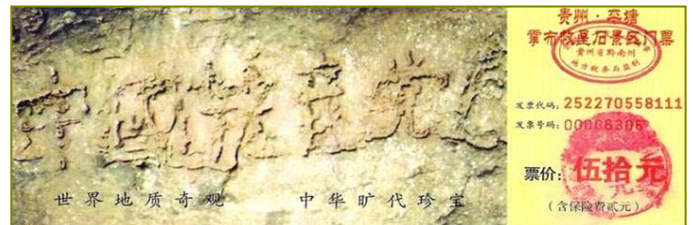 中國共产党亡
世界地质奇观 中华旷代珍宝
贵州·平塘
掌布救星石景区门票
贵州省黔南州
地方税务局监制
发票代码: 252270558111
发票号码: 00006306
票价: 伍拾元
(含保险费贰元)